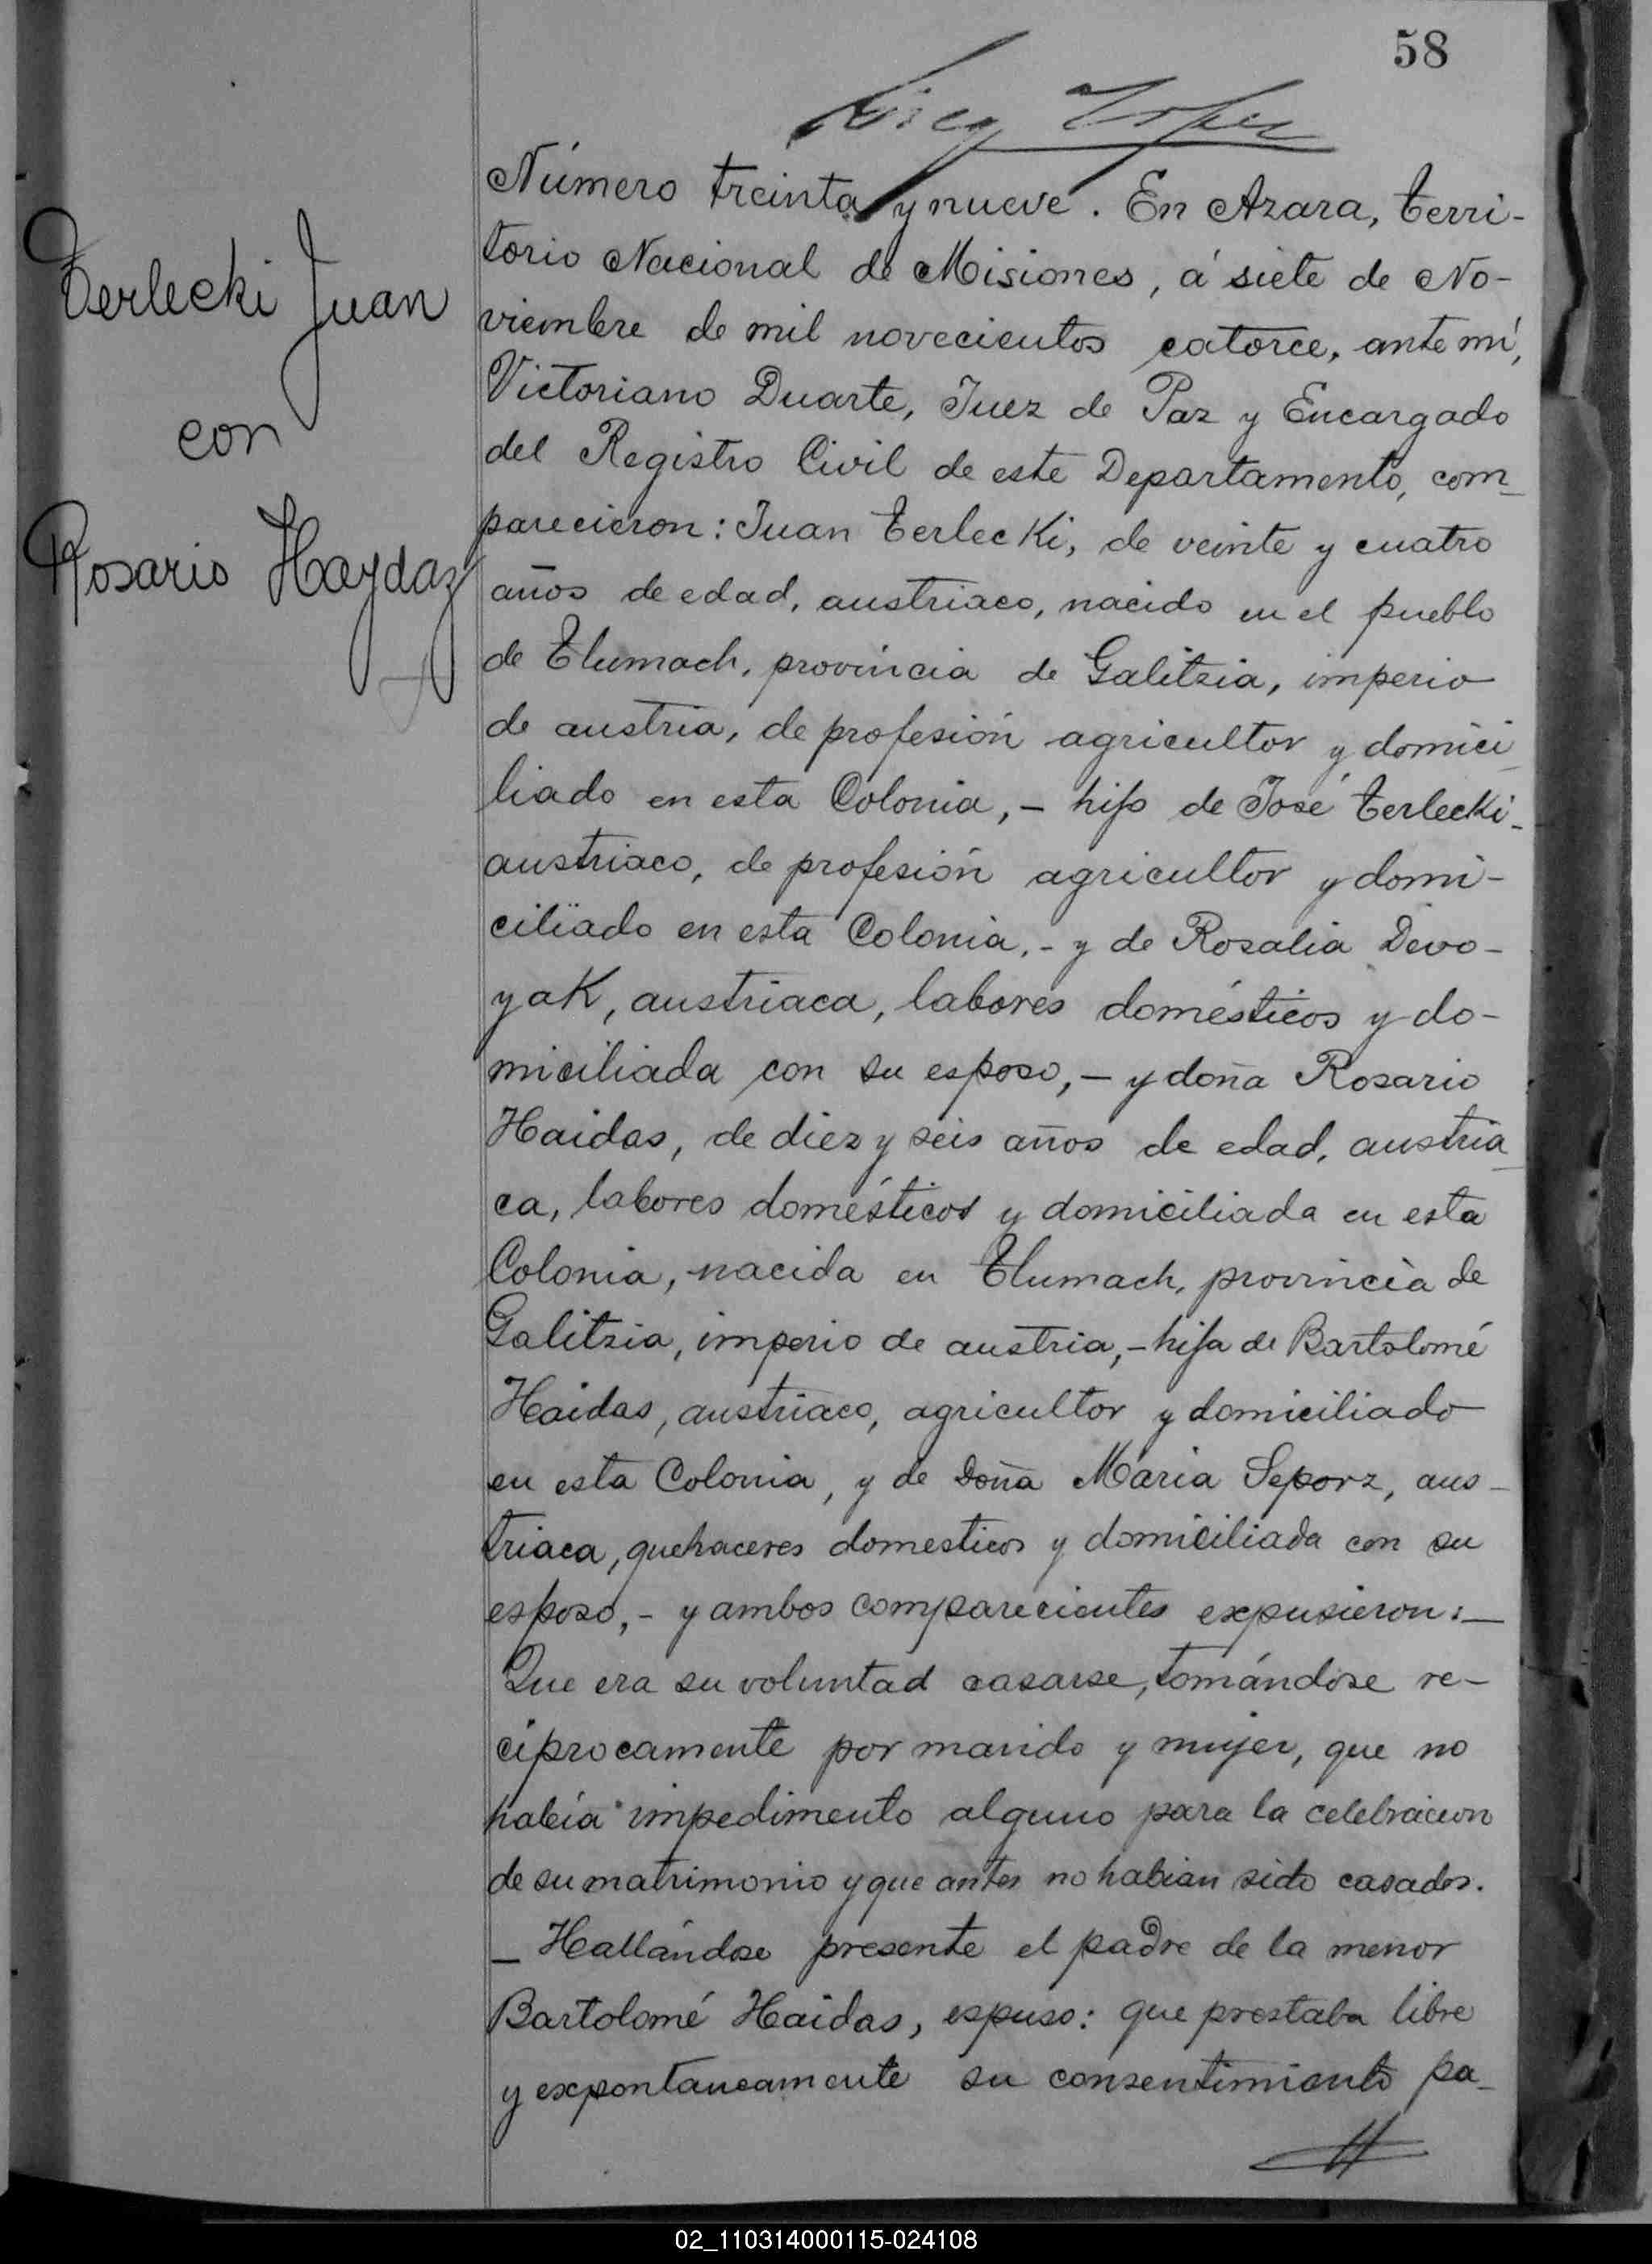 58
Terlecki Juan
con
Rosario Haydaz
Número treinta y nueve. En Azara, terri-
torio Nacional de Misiones, á siete de No-
viembre de mil novecientos catorce, ante mí,
Victoriano Duarte, Juez de Paz y Encargado
del Registro Civil de este Departamento, com-
parecieron: Juan Terlecki, de veinte y cuatro
años de edad, austriaco, nacido en el pueblo
de Tlumach, provincia de Galitzia, imperio
de austria, de profesión agricultor y domici
liado en esta Colonia, - hijo de José Terlecki-
austriaco, de profesión agricultor y domi-
ciliado en esta Colonia, - y de Rosalia Devo-
yak, austriaca, labores domésticos y do-
miciliada con su esposo, - y doña Rosario
Haidas, de diez y seis años de edad, austria
ca, labores domésticos y domiciliada en esta
Colonia, nacida en Tlumach, provincia de
Galitzia, imperio de austria, - hija de Bartolomé
Haidas, austriaco, agricultor y domiciliado
en esta Colonia, y de Doña Maria Seporz, aus-
triaca, quehaceres domesticos y domiciliada con su
esposo, - y ambos comparecientes expusieron: -
Que era su voluntad casarse, tomándose re-
ciprocamente por marido y mujer, que no
había impedimento alguno para la celebracion
de su matrimonio y que antes no habian sido casados.
- Hallándose presente el padre de la menor
Bartolomé Haidas, espuso: que prestaba libre
y expontaneamente su consentimiento pa-
02_110314000115-024108